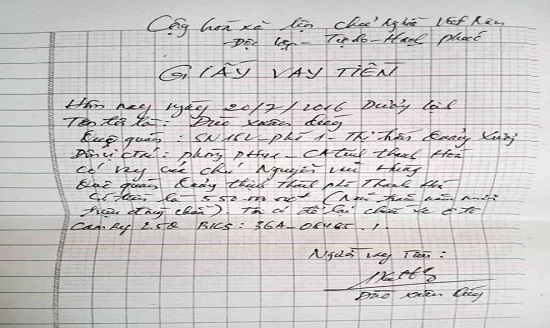 Cộng hoà xã hội chủ Nghĩa Việt Nam
Độc lập - Tự do - Hạnh phúc
GIẤY VAY TIỀN
Hôm nay ngày 20/7/2016 Dương lịch
Tên tôi là: Đào Xuân
Quê quán: SN 16L - phố 1 - Thị trấn Quảng Xương
Đơn vị ctac: phòng PH41 - CA tỉnh Thanh Hoá
Có vay của chú Nguyễn Hưng
Quê quán Quảng Thịnh Thành phố Thanh Hoá
Số tiền là 550.000.000đ (Năm trăm năm mươi
triệu đồng chẵn). Tôi có để lại xe ô tô
Camry 2.5Q BKS: 36A-
Người vay Tiền:
Đào Xuân